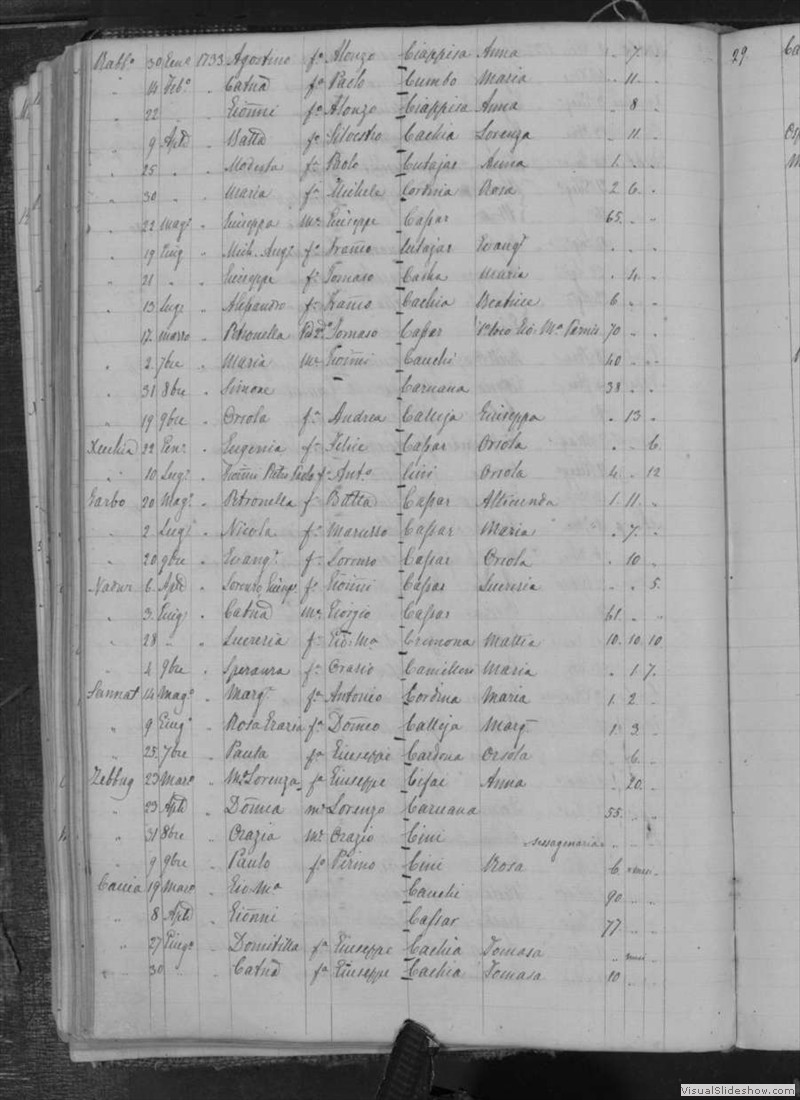 Rabto 30 Geno 1733 Agostino fa Alonzo Ciappisa Anna 1 . 7 .
" 14 Febo " Catnd fa Paolo Cumbo Maria . . 11 .
" 22 " " Gionni fo Alonzo Ciappisa Anna . 8 .
" 9 Aple " Batta fo Silvestro Cachia Lorenza . 11 .
" 25 " " Modesta fa Paolo Cutajar Anna 1 . .
" 30 " Maria fa Michele Cordina Rosa 2 6 .
" 22 Mago " Giuseppa Me Giuseppe Cassar 65 . .
" 19 Giug " Mich. Ango fo Franco Cutajar Evanga . . .
" 21 " " Giuseppe fo Tomaso Maria . 4 .
" 13 Lugo " Alessandro fo Franco Cachia Beatrice 6 . .
" 17 " Petronella Tomaso Cassar Gio Ma 70 . .
" 2 7bre " Maria Me Gionni Cauchi 40 . .
" 31 8bre " Simone – Caruana 38 . .
" 19 9bre " Orsola fa Andrea Calleja Giuseppa . 13 .
Xeuchia 22 Geno " Eugenia fa Felice Cassar Orsola . . 6
" 10 Lugo " Gionni Pietro Paolo fo Anto Cini Orsola 4 . 12
Garbo 20 Mago " Petronella fa Batta Cassar 1 11 .
" 2 Lugo " Nicola fo Cassar Maria . 7 .
" 20 9bre " Evanga fa Lorenzo Cassar Orsola . 10 .
Nadur 6 Aple " Lorenzo Giuspe fo Gionni Cassar Lucrezia . . 5
" 3 Giug " Catnd Me Giorgio Cassar 61 . .
" 28 " " Lucrezia fa Gio Ma Cremona Mattia 10 10 10
" 4 9bre " Speranza fa Orazio Camilleri Maria . 1 7
Sannat 14 Mago " Marga fa Antonio Cordina Maria 1 2 .
" 9 Giugo " Rosa Grazia fa Domco Calleja Marga 1 3 .
" 25 7bre " Paula fa Giuseppe Cardona Orsola . 6 .
Zebbug 23 Marzo " Ma Lorenza fa Giuseppe Cifai Anna . 20 .
" 23 Aple " Domca me Lorenzo Caruana 55 . .
" 31 8bre " Orazia Me Orazio Cini sessagenaria . . .
" 9 9bre " Paulo fo Pirino Cini Rosa 6 mesi .
Caccia 19 Marzo " Gio Ma Cauchi 90 . .
" 8 Aple " Gionni Cassar 77 . .
" 27 Giugo " Domitilla fa Giuseppe Cachia Tomasa " mesi .
" 30 " Catnd fa Giuseppe Cachia Tomasa 10 . .
29
Ca
VisualSlideshow.com